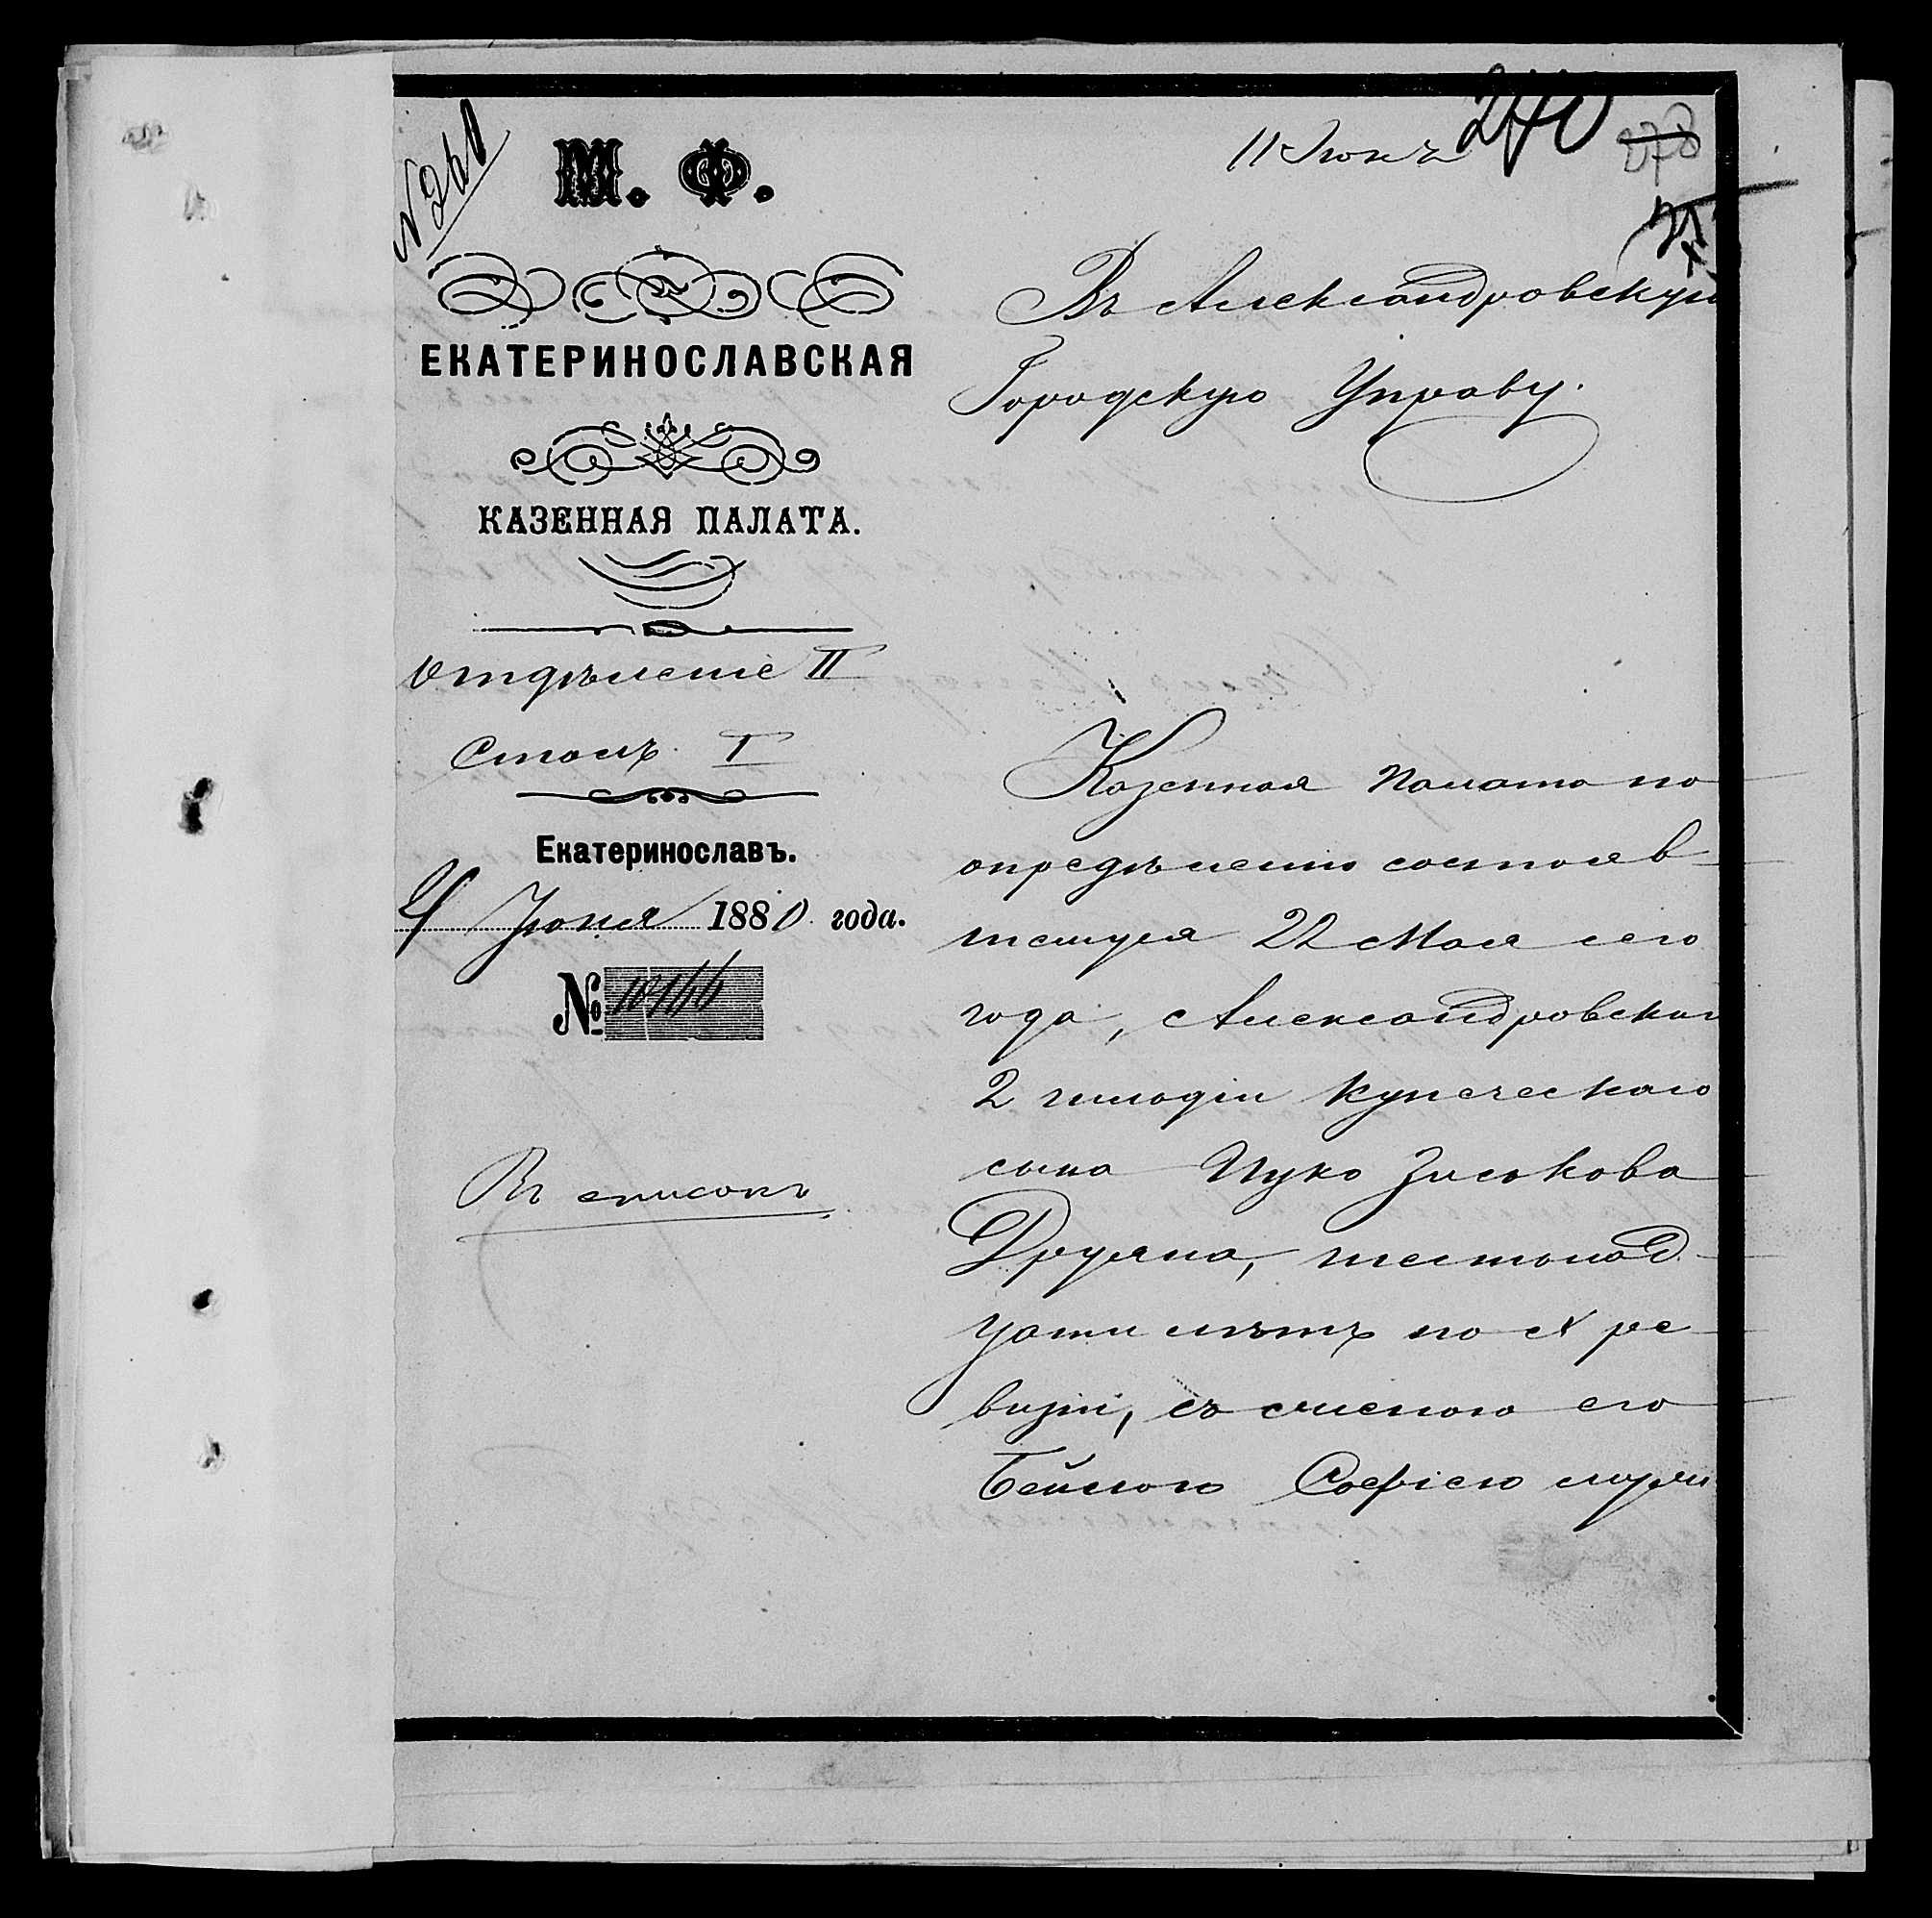 № 260
М. Ф.
ЕКАТЕРИНОСЛАВСКАЯ
КАЗЕННАЯ ПАЛАТА.
Отдѣленіе II
Столъ I
Екатеринославъ.
4 Іюня 1880 года.
№ 10166
Въ списокъ
11 Іюня
240
278
Въ Александровскую
Городскую Управу.
Казенная Палата по
опредѣленію состояв
шемуся 22 Мая сего
года, Александровскаго
2 гильдіи купеческаго
сына Ицко Зиськова
Друяна, шестьнад
цати лѣтъ по X ре
визіи, съ женою его
Бейлою Софіею